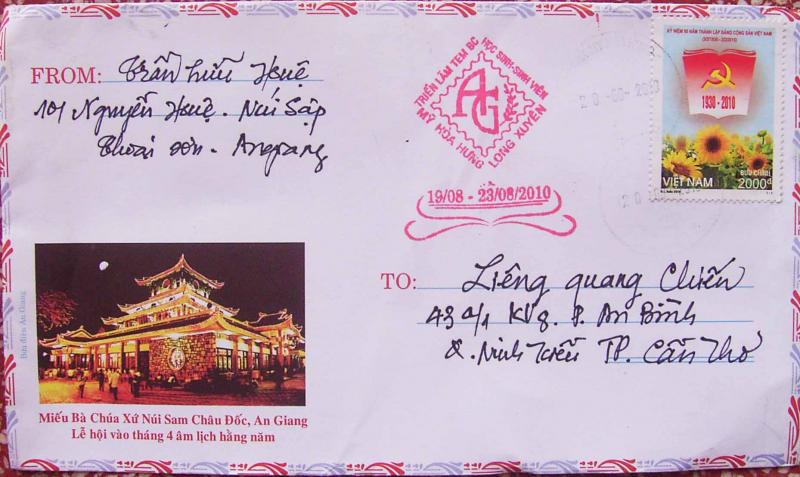 FROM: Trần Hữu Huệ
101 Nguyễn Huệ - Núi Sập
Thoại Sơn - Angiang
TRIỂN LÃM TEM BC HỌC SINH-SINH VIÊN
AG
MỸ HÒA HƯNG LONG XUYÊN
19/08 - 23/08/2010
KỶ NIỆM 80 NĂM THÀNH LẬP ĐẢNG CỘNG SẢN VIỆT NAM
(3/2/1930 - 3/2/2010)
1930 - 2010
BƯU CHÍNH
VIỆT NAM 2000đ
TO: Liêng quang Chiến
43 a/1 KV2. P. An Bình
Q. Ninh Kiều TP. Cần Thơ
Bưu điện An Giang
Miếu Bà Chúa Xứ Núi Sam Châu Đốc, An Giang
Lễ hội vào tháng 4 âm lịch hằng năm